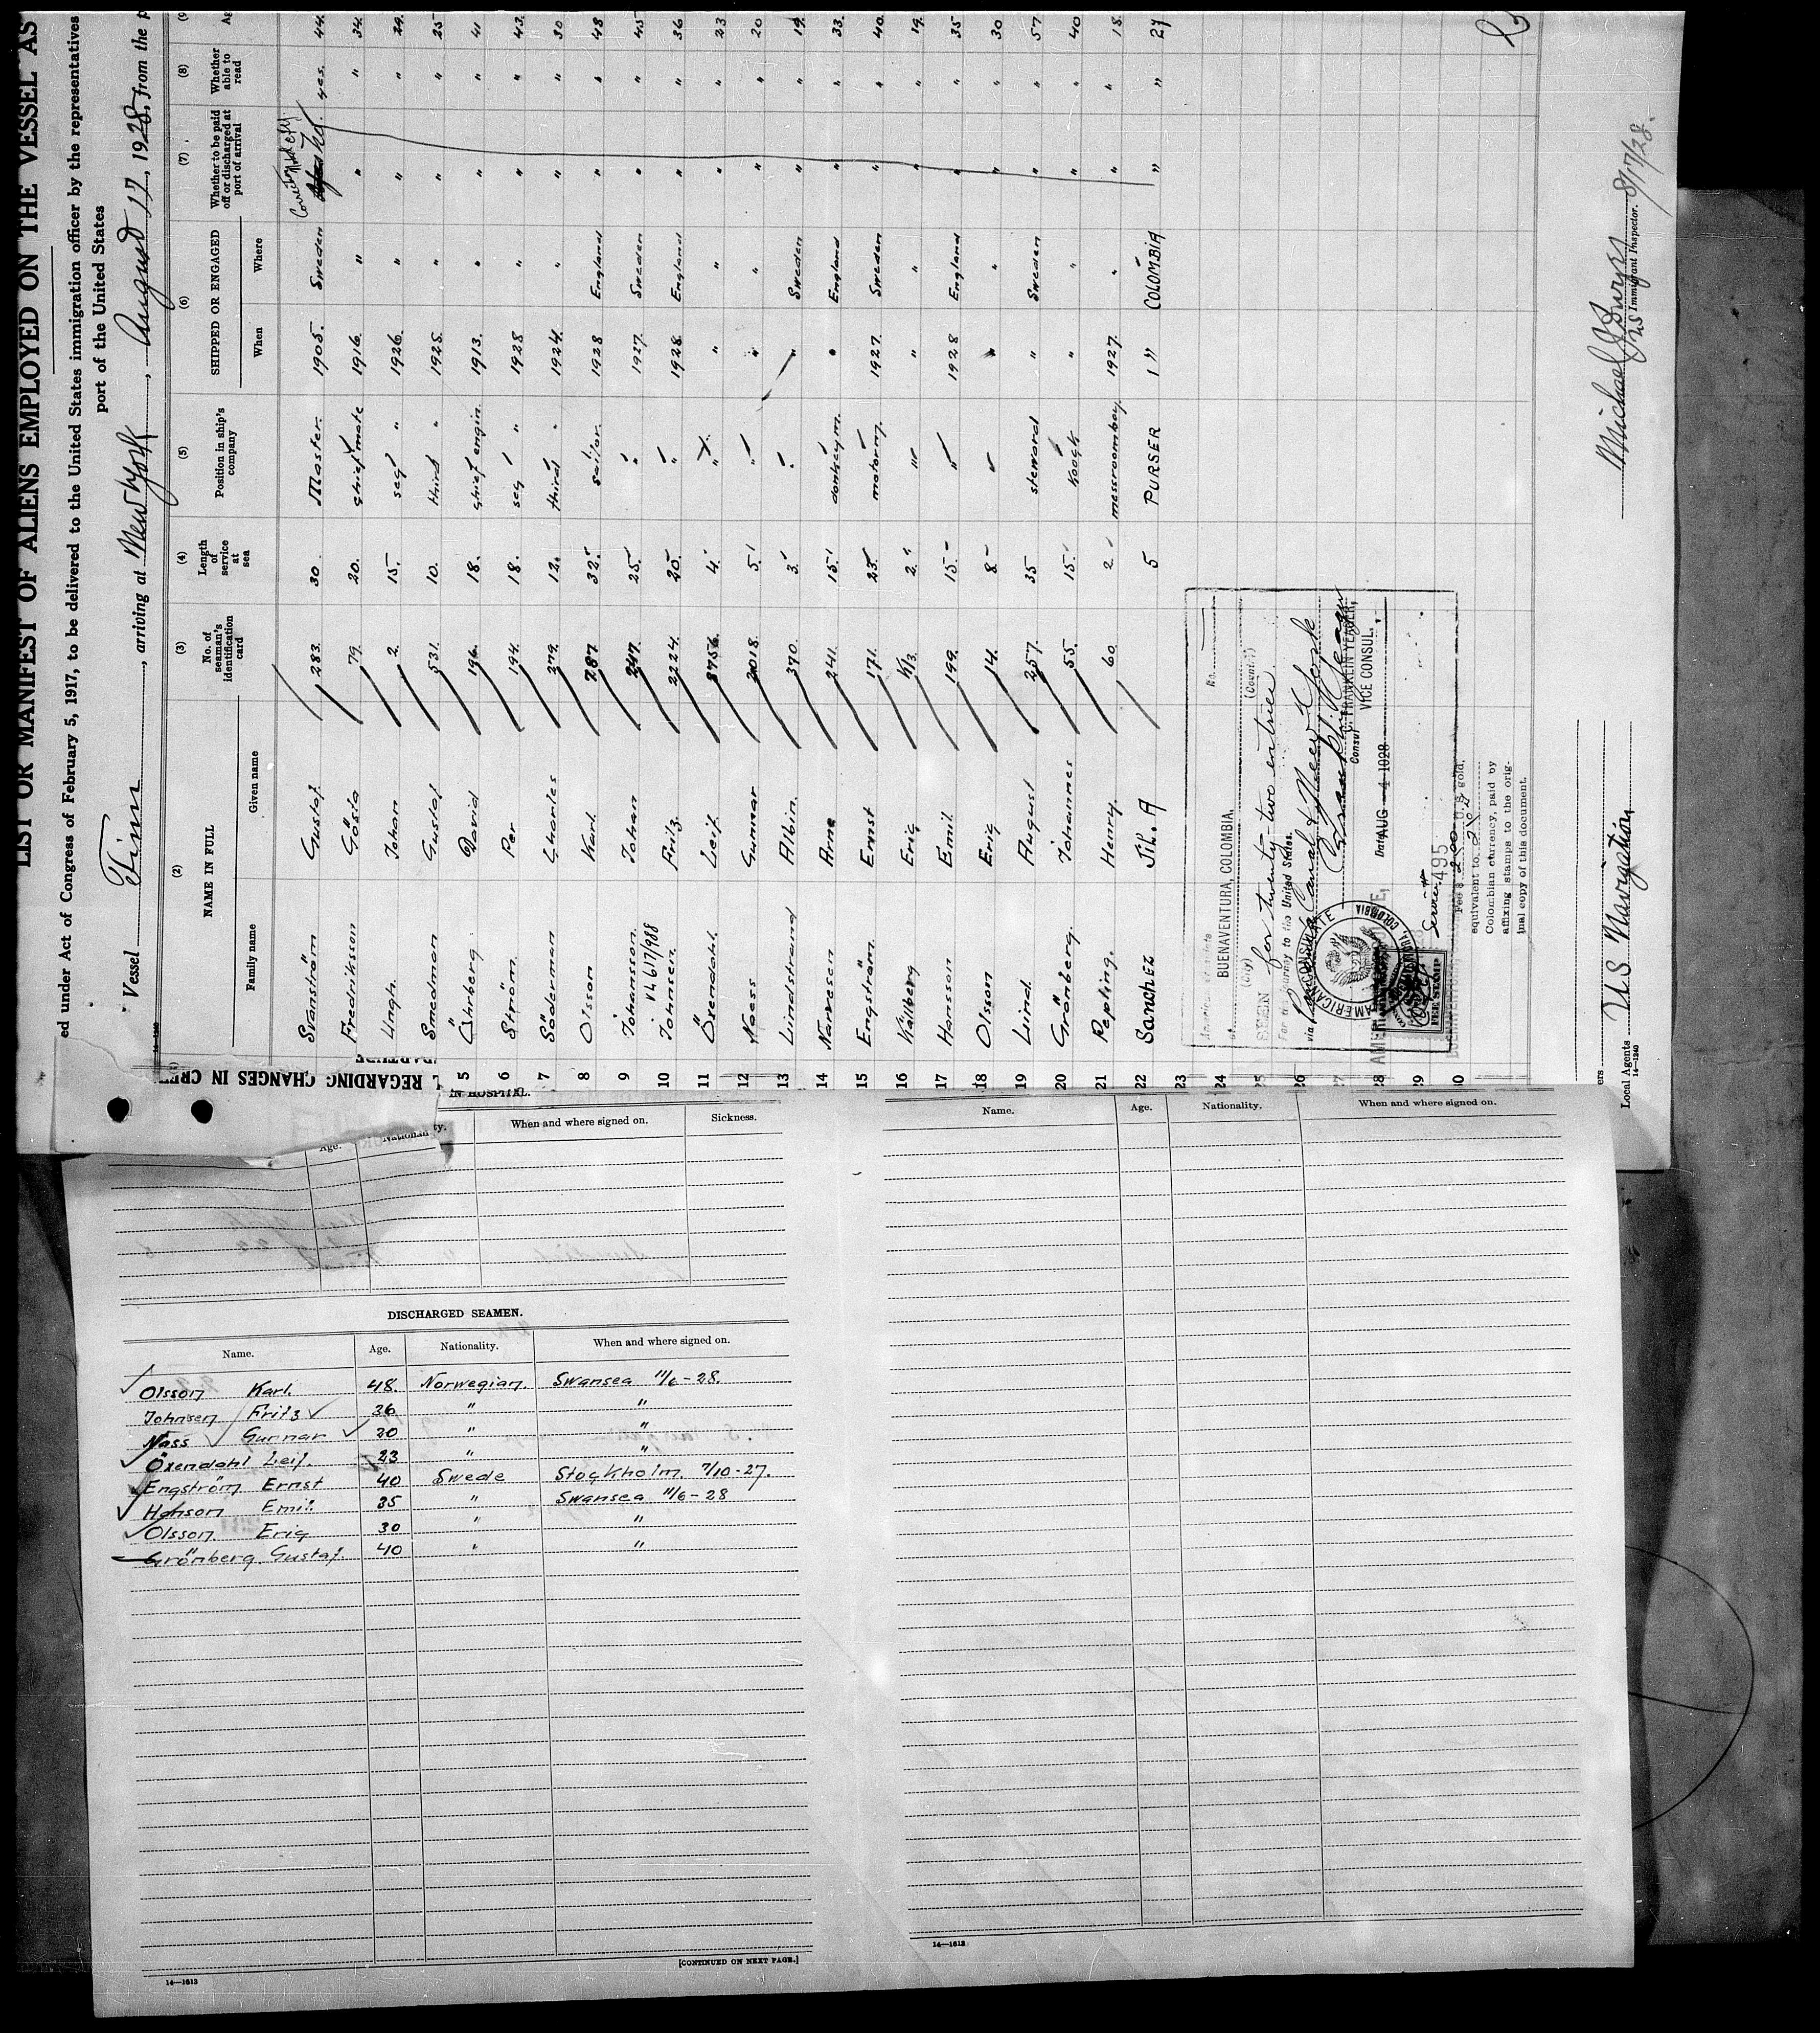 LIST OR MANIFEST OF ALIENS EMPLOYED ON THE VESSEL AS
ed under Act of Congress of February 5, 1917, to be delivered to the United States immigration officer by the representatives
port of the United States
Vessel Finn, arriving at New York, August 17, 1928, from the p
(2) (3) (4) (5) (6) (7) (8) (9
NAME IN FULL
Family name Given name
No. of seaman's identification card
Length of service at sea
Position in ship's company
SHIPPED OR ENGAGED
When Where
Whether to be paid off or discharged at port of arrival
Whether able to read
Ag
Svanström Gustaf 283. 30. Master. 1905. Sweden yes. 44.
Fredriksson Gösta 79. 20. chief mate 1916. " " " 34.
Ungh. Johan 2. 15. seg " 1926. " " " 29.
Smedman Gustaf 531. 10. third " 1925. " " " 25
5 Öhrberg David 196. 18. chief engin. 1913. " " " 41
6 Ström. Per 194. 18. seg " 1928 " " " 43.
7 Söderman Charles 379. 12. third " 1924. " " " 30
8 Olsson Karl. 787 32. sailor. 1928 England " " 48
9 Johansson. Johan 247. 25. " 1927. Sweden " " 45
10 Johnsen. Fritz. 2224. 20. " 1928. England " " 36
11 Öxendahl. Leif. 3756. 4. " " " " " 23
12 Naess Gunnar 2018. 5. " " " " " 20
13 Lundstrand Albin. 370. 3. " " Sweden " " 19.
14 Narvesen Arne 241. 15. donkeym. " England " " 33.
15 Engström. Ernst 171. 23. motorm. 1927. Sweden " " 40.
16 Wallberg Erig 2. " " " " " 19.
17 Hansson Emil 199. 15. " 1928 England " " 35
18 Olsson Erig 14. 8 " " " " " 30
19 Lind. August 257. 35 steward " Sweden " " 57
20 Grönberg. Johannes 55. 15. koogk " " " " 40
21 Pepling. Henry. 60 2 messroomboy. 1927. " " " 18.
22 SANCHEZ JIL. A 5 PURSER 1 " COLOMBIA " " 27
23
24
25
26
27
28
29
30
BUENAVENTURA, COLOMBIA.
No.
(City) (Country)
SEEN for twenty-two entries.
For the journey to the United States.
via Panama Canal & New York
C. FRANKLIN YEAGER,
Consul
VICE CONSUL.
Dated AUG 4 1928
AMERICAN CONSULATE
BUENAVENTURA, COLOMBIA
FEE STAMP
Service # 495
Fee $ 2.00 U.S. gold,
equivalent to
Colombian currency, paid by
affixing stamps to the orig-
inal copy of this document.
Local Agents U.S Navigation
14—1240
Michael J
US Immigrant Inspector. 8/17/28.
REGARDING CHANGES IN CRE
IN HOSPITAL.
Age. Nationality. When and where signed on. Sickness.
DISCHARGED SEAMEN.
Name. Age. Nationality. When and where signed on.
Olsson Karl. 48. Norwegian. Swansea 11/6-28.
Johnsen Fritz 36 " "
Nass Gunnar 20 " "
Öxendahl Leif. 23 " "
Engström Ernst 40 Swede Stogkholm. 7/10-27.
Hanson Emil 35 " Swansea 11/6-28
Olsson Erig 30 " "
Grönberg Gustaf. 40 " "
[CONTINUED ON NEXT PAGE.]
14—1613
Name. Age. Nationality. When and where signed on.
14—1613